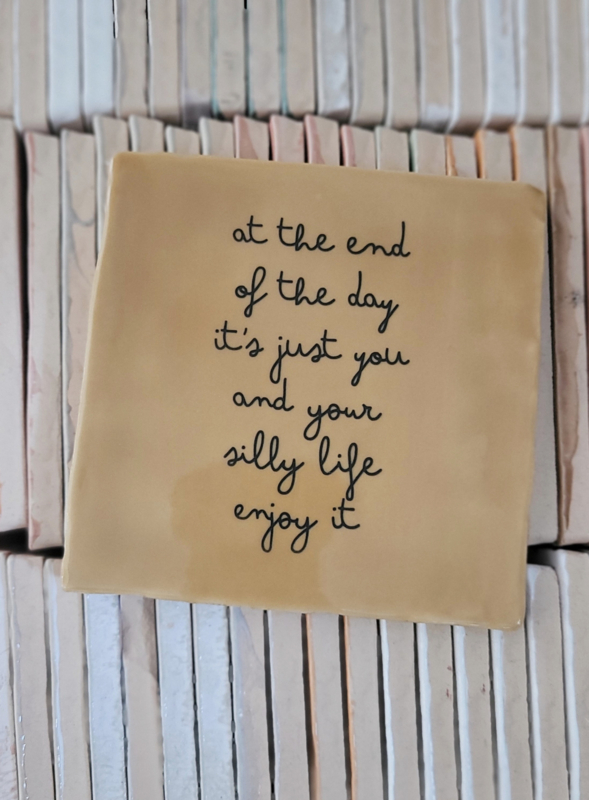 at the end
of the day
it's just you
and your
silly life
enjoy it